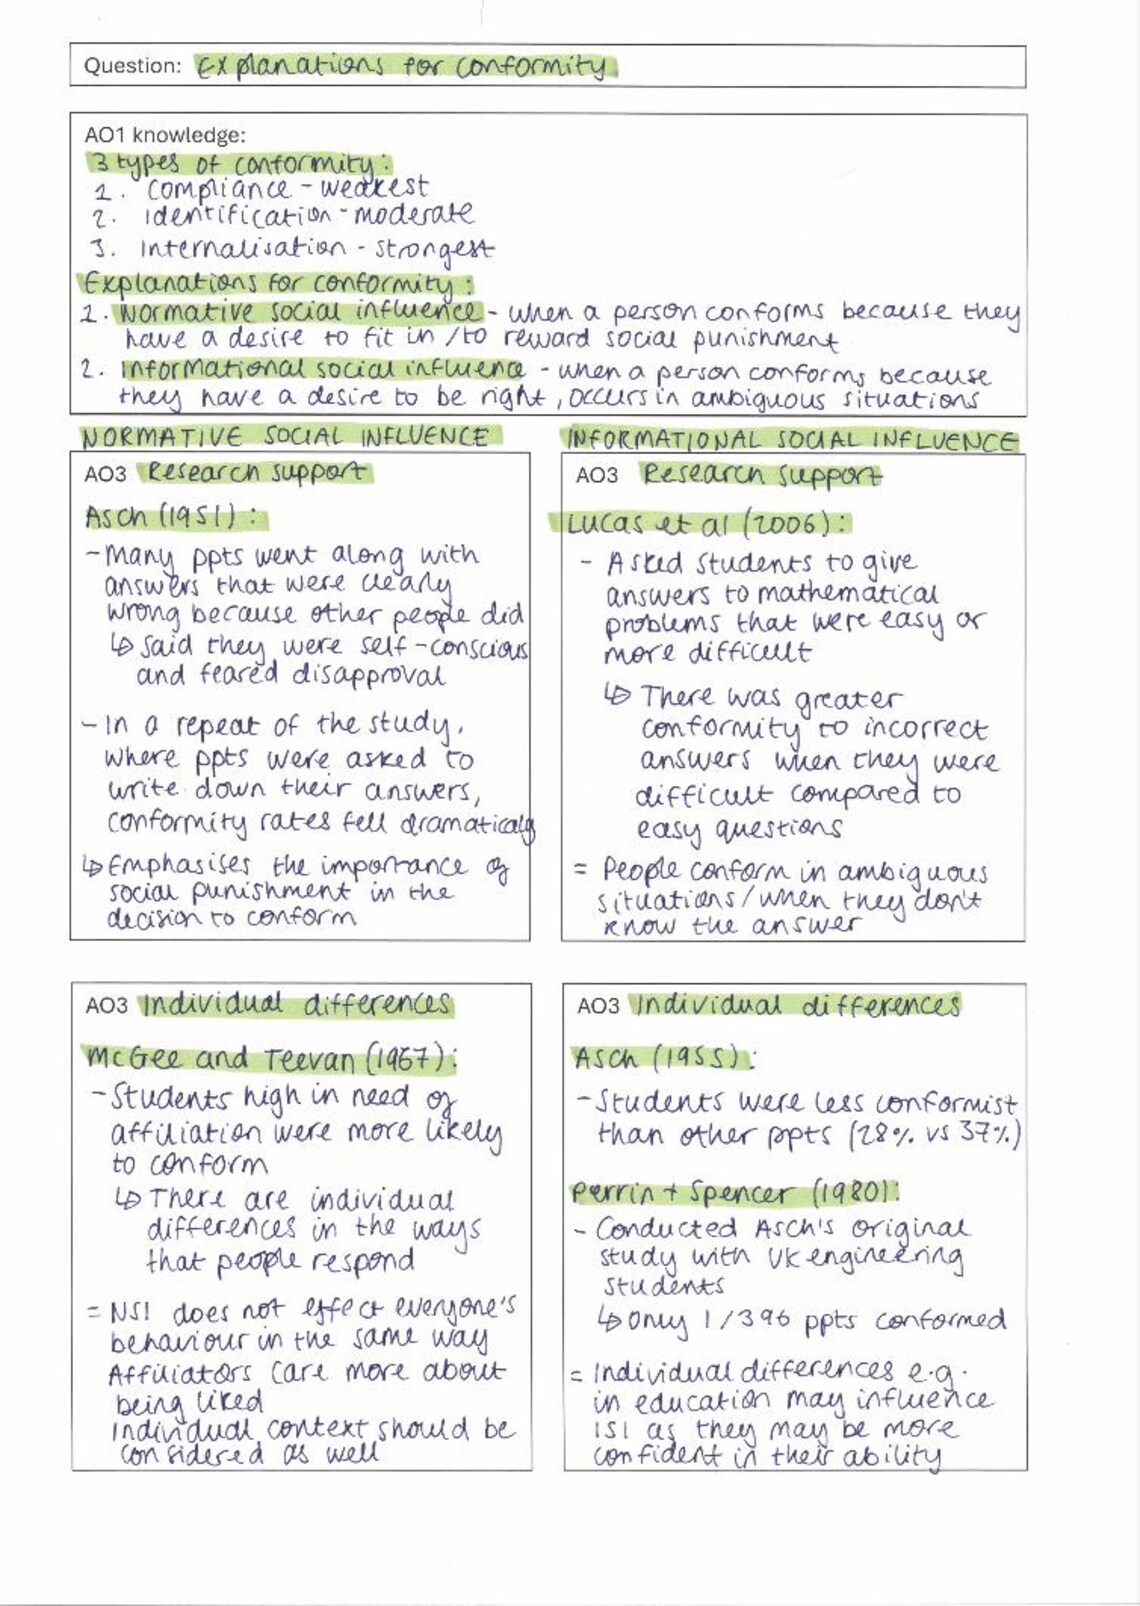 Question: Explanations for conformity
AO1 knowledge:
3 types of conformity:
1. Compliance - weakest
2. Identification - moderate
3. Internalisation - strongest
Explanations for conformity:
1. Normative social influence - when a person conforms because they
have a desire to fit in / to reward social punishment
2. Informational social influence - when a person conforms because
they have a desire to be right, occurs in ambiguous situations
NORMATIVE SOCIAL INFLUENCE
AO3 Research support
Asch (1951):
- Many ppts went along with
answers that were clearly
wrong because other people did
↳ Said they were self-conscious
and feared disapproval
- In a repeat of the study,
where ppts were asked to
write down their answers,
conformity rates fell dramatically
↳ Emphasises the importance of
social punishment in the
decision to conform
INFORMATIONAL SOCIAL INFLUENCE
AO3 Research support
Lucas et al (2006):
- Asked students to give
answers to mathematical
problems that were easy or
more difficult
↳ There was greater
conformity to incorrect
answers when they were
difficult compared to
easy questions
= People conform in ambiguous
situations/when they don't
know the answer
AO3 Individual differences
McGee and Teevan (1967):
- Students high in need of
affiliation were more likely
to conform
↳ There are individual
differences in the ways
that people respond
= NSI does not effect everyone's
behaviour in the same way
Affiliators care more about
being liked
Individual context should be
considered as well
AO3 Individual differences
Asch (1955):
- Students were less conformist
than other ppts (28% vs 37%)
Perrin + Spencer (1980):
- Conducted Asch's original
study with UK engineering
students
↳ Only 1/396 ppts conformed
= Individual differences e.g.
in education may influence
ISI as they may be more
confident in their ability